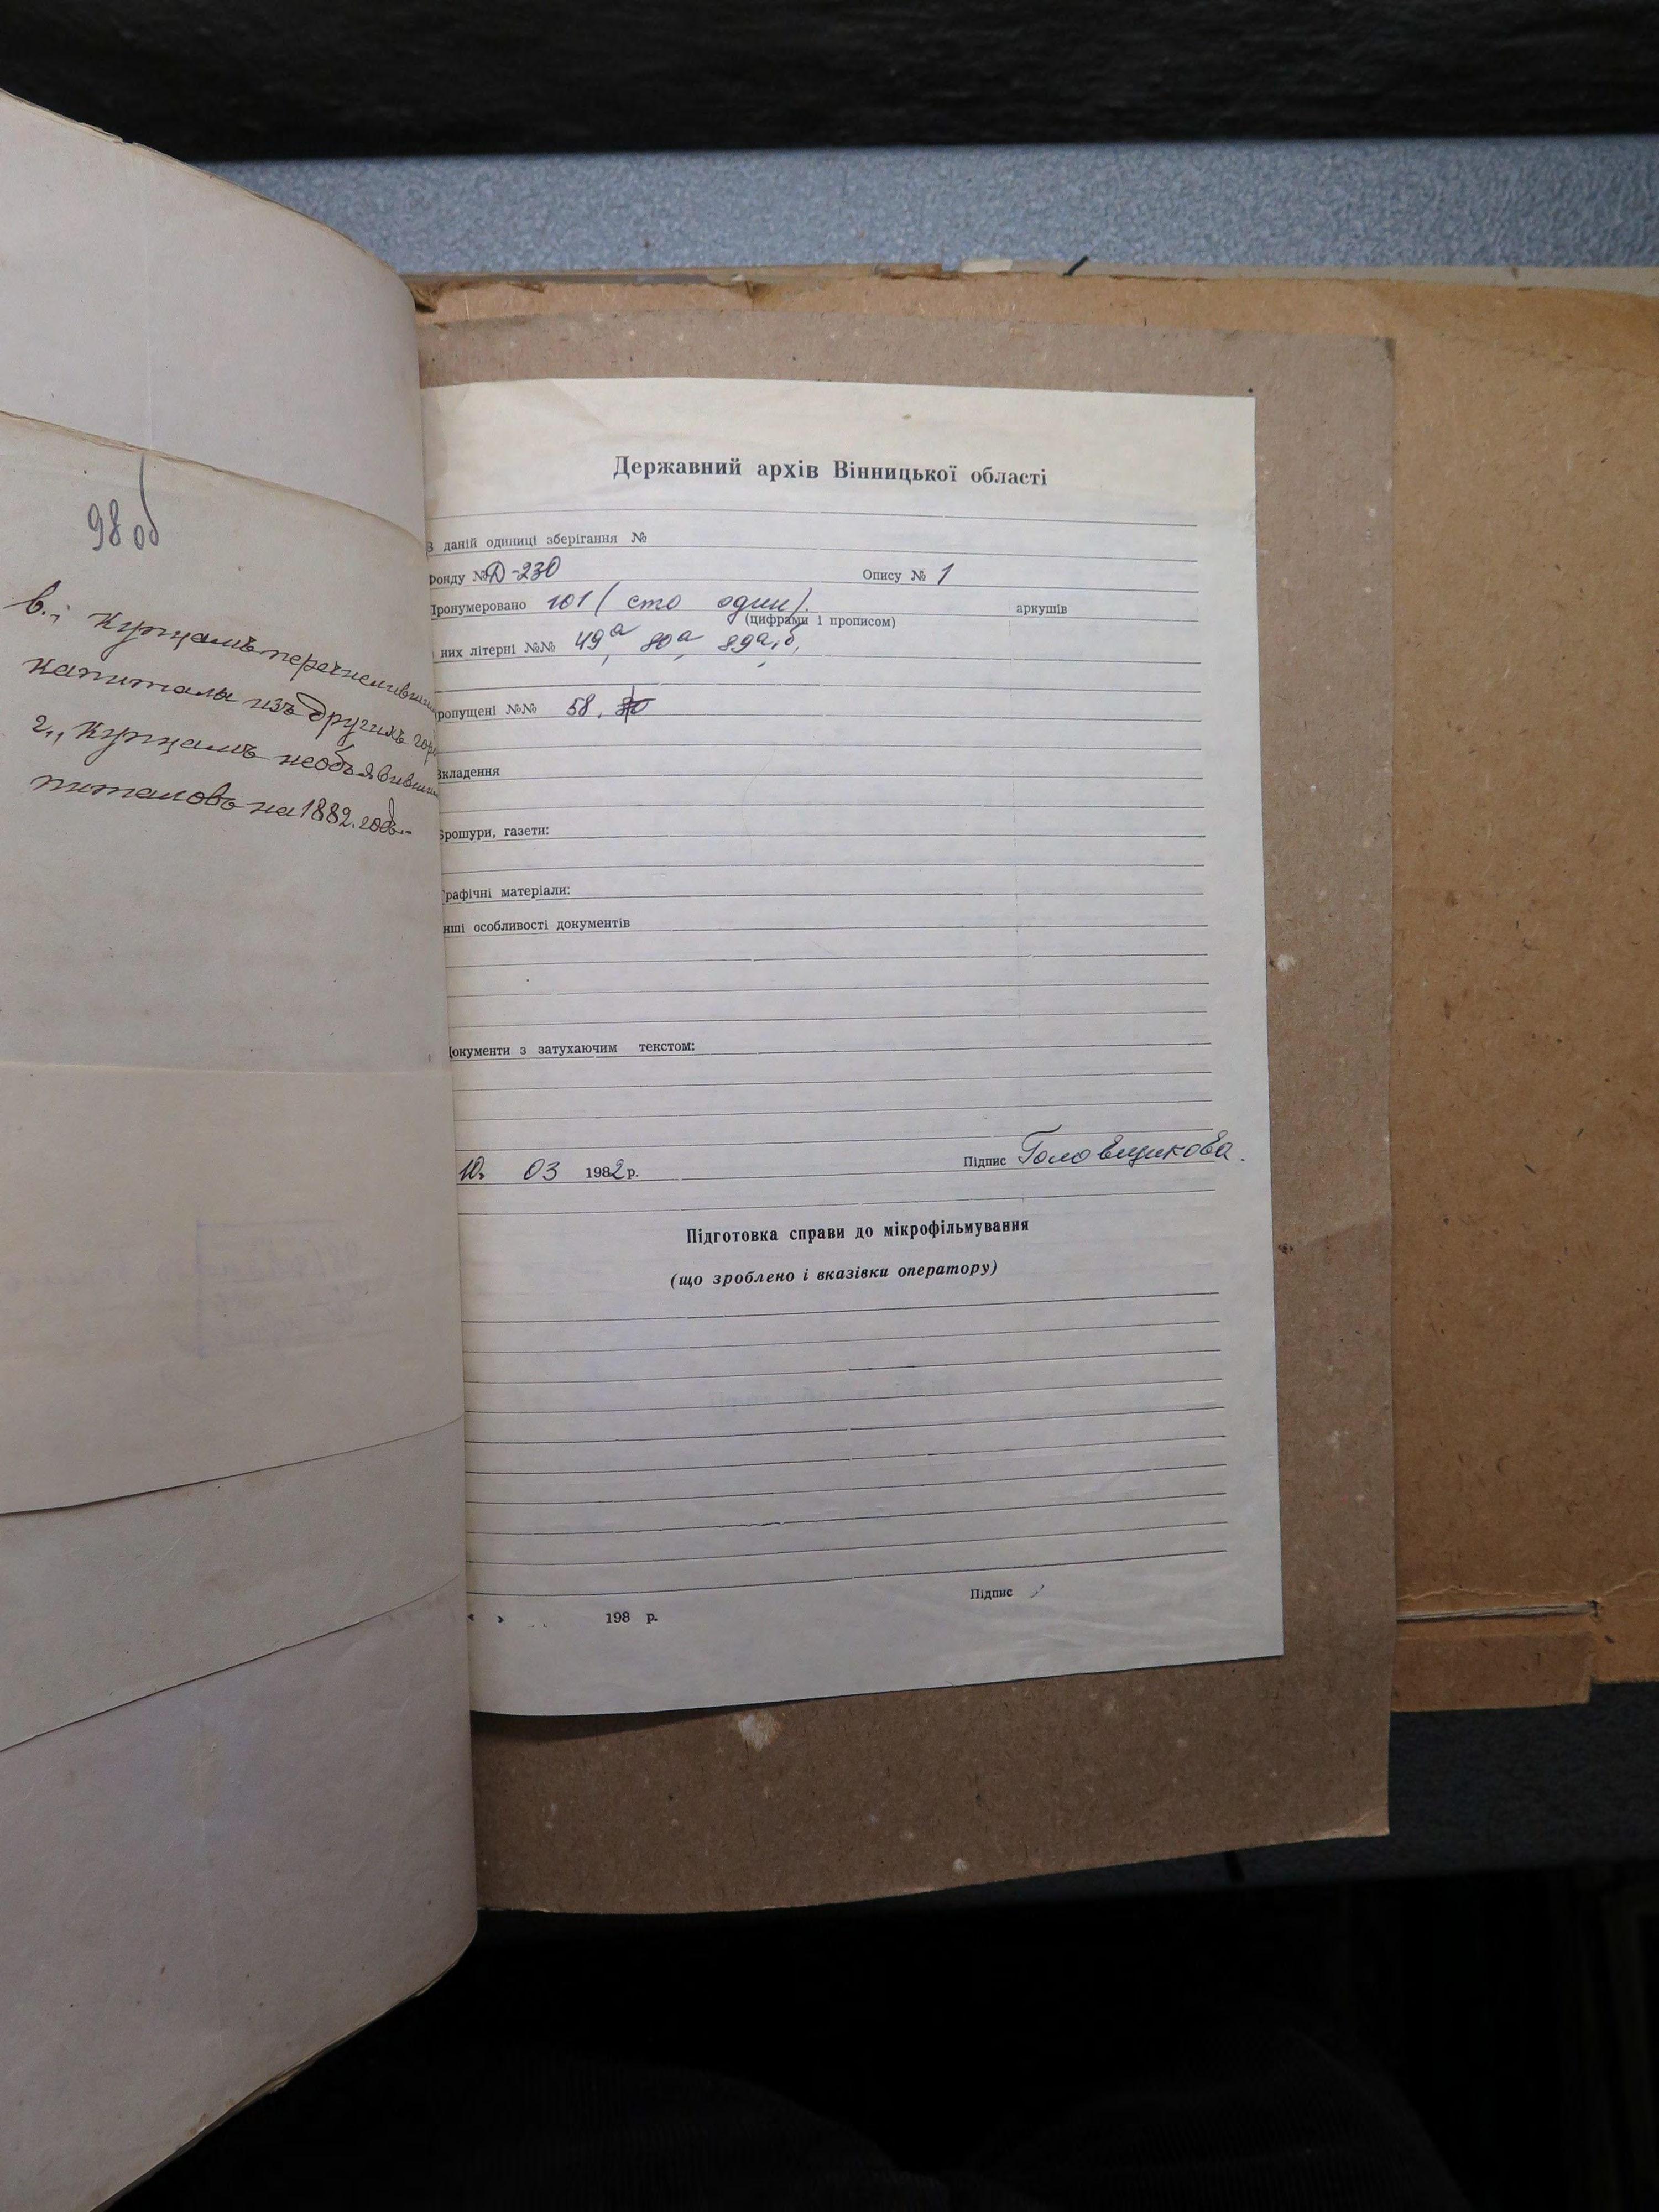 98 об
в., Купцамъ перечисливши
капитала изъ другихъ горо
г., Купцамъ необъявивши
питаловъ на 1882. годъ.-
Державний архів Вінницької області
В даній одиниці зберігання №
фонду № Д-230 Опису № 1
Пронумеровано 101 (сто один). аркушів
(цифрами і прописом)
них літерні №№ 49а, 80а, 89а,б,
ропущені №№ 58,
Вкладення
Брошури, газети:
Графічні матеріали:
нші особливості документів
Документи з затухаючим текстом:
10. 03 1982 р. Підпис Головщикова.
Підготовка справи до мікрофільмування
(що зроблено і вказівки оператору)
Підпис
« » 198 р.